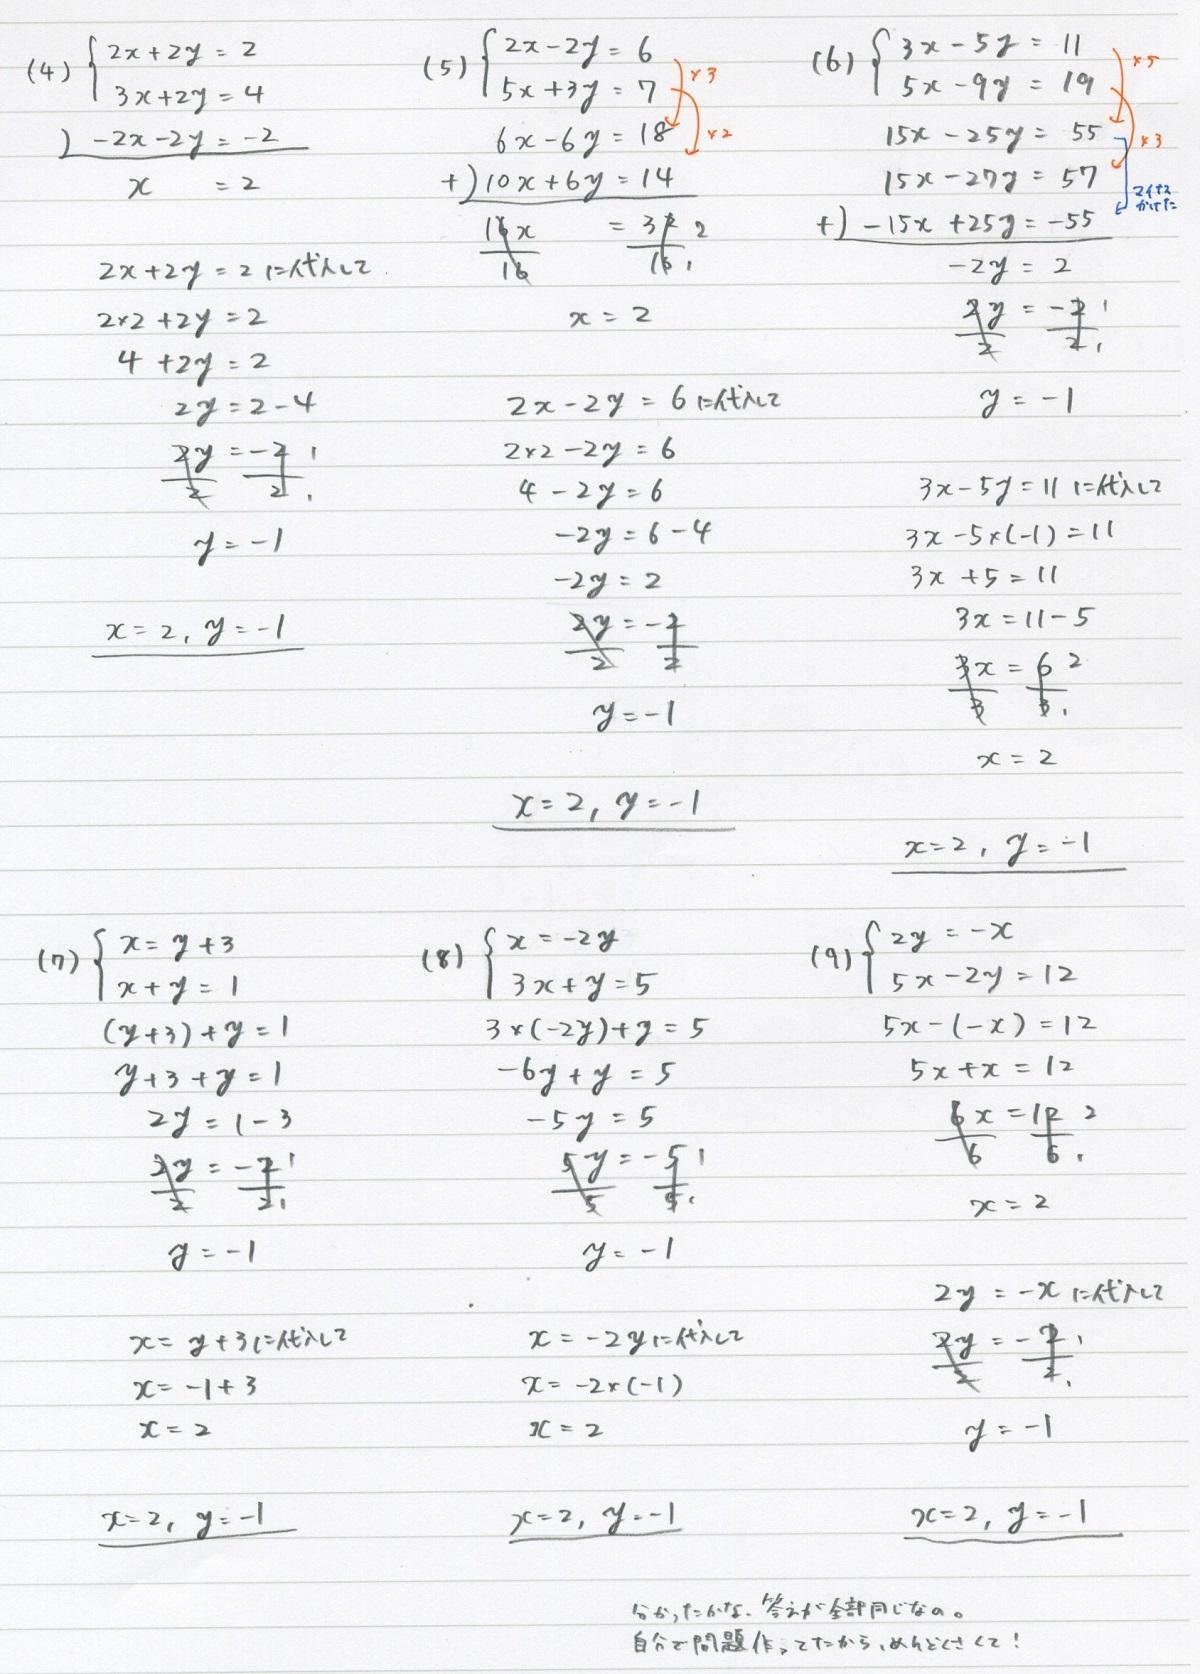 (4) { 2x+2y=2
3x+2y=4
) -2x-2y=-2
x =2
2x+2y=2に代入して
2×2+2y=2
4+2y=2
2y=2-4
2y/2=-2/2 1 1
y=-1
x=2, y=-1
(5) { 2x-2y=6
5x+3y=7
×3
6x-6y=18
×2
+) 10x+6y=14
16x/16 =32/16 2 1
x=2
2x-2y=6に代入して
2×2-2y=6
4-2y=6
-2y=6-4
-2y=2
2y/2=-2/2
y=-1
x=2, y=-1
(6) { 3x-5y=11
5x-9y=19
×5
15x-25y=55
×3
15x-27y=57
マイナス
かけた
+) -15x+25y=-55
-2y=2
2y/2=-2/2 1 1
y=-1
3x-5y=11に代入して
3x-5×(-1)=11
3x+5=11
3x=11-5
3x/3=6/3 2 1
x=2
x=2, y=-1
(7) { x=y+3
x+y=1
(y+3)+y=1
y+3+y=1
2y=1-3
2y/2=-2/2 1 1
y=-1
x=y+3に代入して
x=-1+3
x=2
x=2, y=-1
(8) { x=-2y
3x+y=5
3×(-2y)+y=5
-6y+y=5
-5y=5
5y/5=-5/5 1 1
y=-1
x=-2yに代入して
x=-2×(-1)
x=2
x=2, y=-1
(9) { 2y=-x
5x-2y=12
5x-(-x)=12
5x+x=12
6x/6=12/6 2 1
x=2
2y=-xに代入して
2y/2=-2/2 1 1
y=-1
x=2, y=-1
分かったかな、答えが全部同じなの。
自分で問題作ってたから、めんどくさくて!